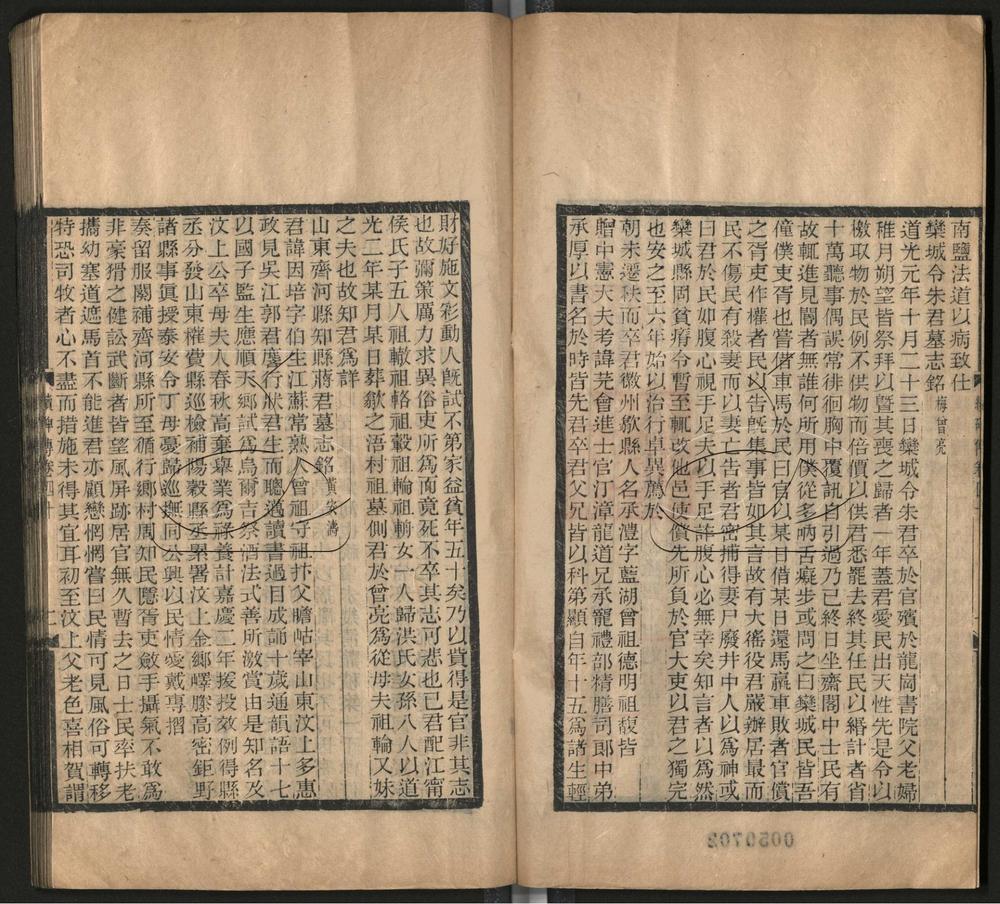 南鹽法道以病致仕
欒城令朱君墓志銘 梅曾亮
道光元年十月二十三日欒城令朱君卒於官殯於龍岡書院父老婦
稚月朔望皆祭拜以暨其喪之歸者一年蓋君愛民出天性先是令以
檄取物於民例不供物而倍價以供君悉罷去終其任民以緡計者省
十萬聽事偶誤常徘徊胸中覆訊自引過乃已終日坐齋閣中士民有
故輒進見閽者無誰何所用僕從多吶舌癡步或問之曰欒城民皆吾
僮僕吏胥也嘗借車馬於民曰官以某日借某日還馬羸車敗者官償
之胥吏作權者民以告旣集事皆如其言故有大徭役君嚴辦居最而
民不傷民有殺妻而以妻亡告者君密捕得妻尸廢井中人以爲神或
曰君於民如腹心視手足夫以手足詐腹心必無幸矣知言者以爲然
欒城縣罔貧瘠令暫至輒改他邑使償先所負於官大吏以君之獨完
也安之至六年始以治行卓異薦於
朝未遷秩而卒君徽州歙縣人名承澧字藍湖曾祖德明祖馥皆
贈中憲大夫考諱芫會進士官汀漳龍道兄承寵禮部精膳司郎中弟
承厚以書名於時皆先君卒君父兄皆以科第顯自年十五爲諸生輕
財好施文彩動人旣試不第家益貧年五十矣乃以貲得是官非其志
也故彌策厲力求異俗吏所爲而竟死不卒其志可悲也已君配江甯
侯氏子五人祖轍祖輅祖轂祖輪祖輈女一人歸洪氏女孫八人以道
光二年某月某日葬歙之浯村祖墓側君於曾亮爲從母夫祖輪又妹
之夫也故知君爲詳
山東齊河縣知縣蔣君墓志銘 黃安濤
君諱因培字伯生江蘇常熟人曾祖守祖抃父瞻岵宰山東汶上多惠
政見吳江郭君麐行狀君生而聰過讀書過目成誦十歲通韻語十七
以國子監生應順天鄉試爲烏爾吉祭酒法式善所激賞由是知名及
汶上公卒母夫人春秋高棄舉業爲祿養計嘉慶二年援投效例得縣
丞分發山東權費縣巡檢補陽穀縣丞累署汶上金鄉嶧滕高密鉅野
諸縣事眞授泰安令丁母憂歸巡撫同公興以民情愛戴專摺
奏留服闋補齊河縣所至循行鄉村周知民隱胥吏斂手攝氣不敢爲
非豪猾之健訟武斷者皆望風屏跡居官無久暫去之日士民率扶老
攜幼塞道遮馬首不能進君亦顧戀惘惘嘗曰民情可見風俗可轉移
特恐司牧者心不盡而措施未得其宜耳初至汶上父老色喜相賀謂
0050702